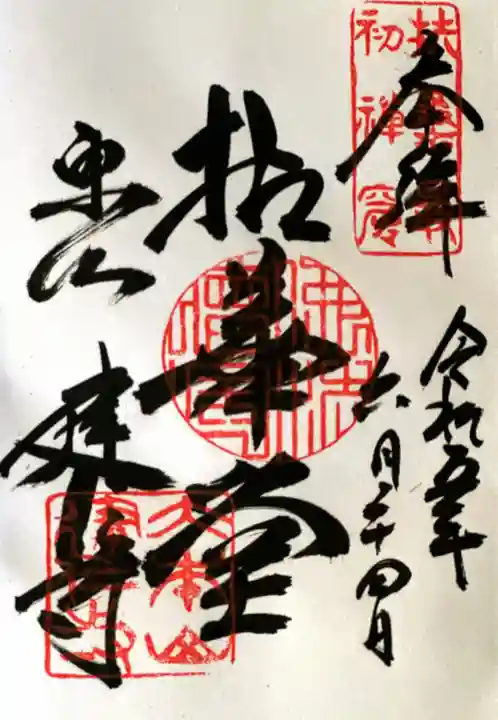 扶桑最
初禪窟
奉拝
令和五年
六月二十四日
拈華堂
東山
建仁寺
大本山